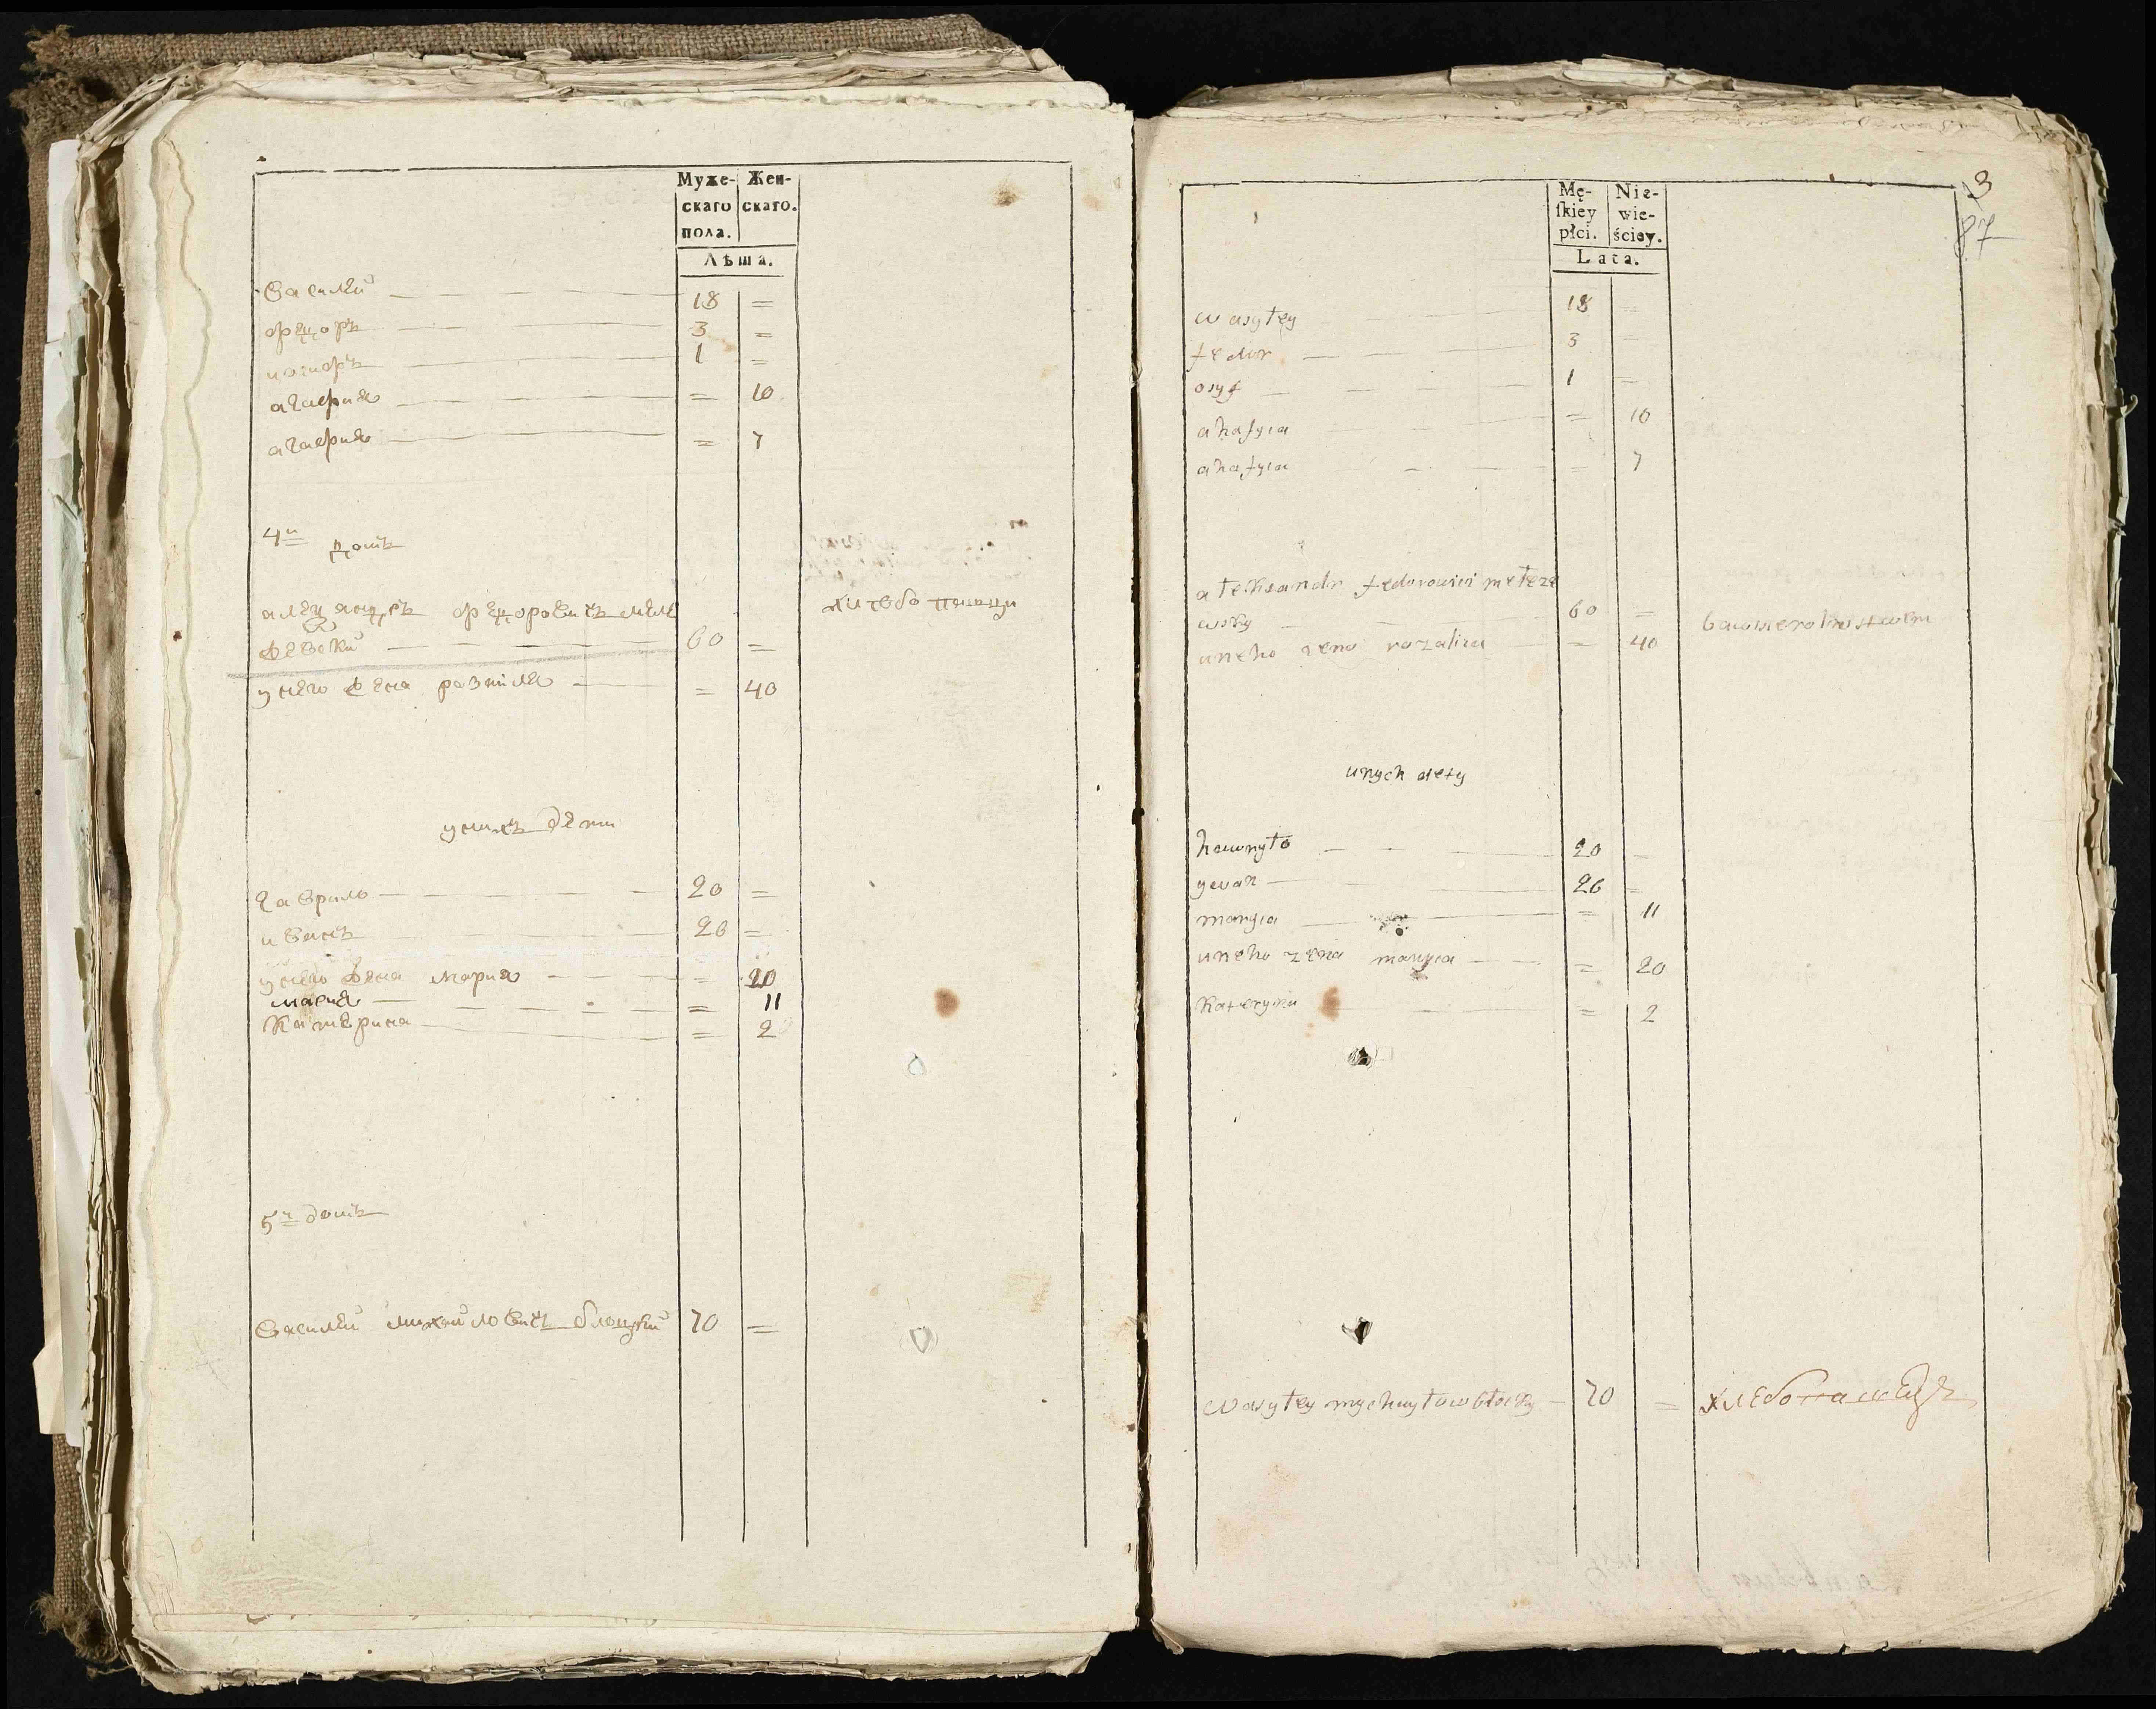 Муже-
скаго
пола.
Жен-
скаго.
Лѣта.
василей — 18 =
федоръ — 3 =
иозифъ — 1 =
агафия — = 10
агафия — = 7
4й домъ
александръ федоровичъ меле
жевски — 60 =
у него жена розалия — = 40
у нихъ дети
гаврило — 20 =
иванъ 26 =
у него жена мария — = 20
мария — = 11
катерина — = 2
5й домъ
василей михайловичъ блоцкий 70 =
3
87
Mę-
skiey
płci.
Nie-
wie-
ściey.
Lata.
wasyłey 18 =
fedor — 3 =
osyf — 1 =
ahafyia = 10
ahafyia — = 7
ałeksandr fedorowicz mełeze
wsky — 60 =
uneho zena rozalia — = 40
unych dety
hawryło — 20 =
ywan — 26 =
maryia — = 11
uneho zena maryia — = 20
Kateryna — = 2
wasyłey mychayłow błocky — 70 = хлебопашецъ